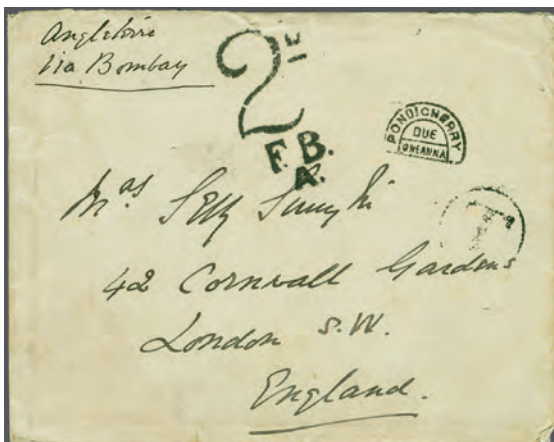 Angleterre
via Bombay
2D
F.B.
A.
PONDICHERRY
DUE
ONE ANNA
T
42 Cornwall Gardens
London S.W.
England.